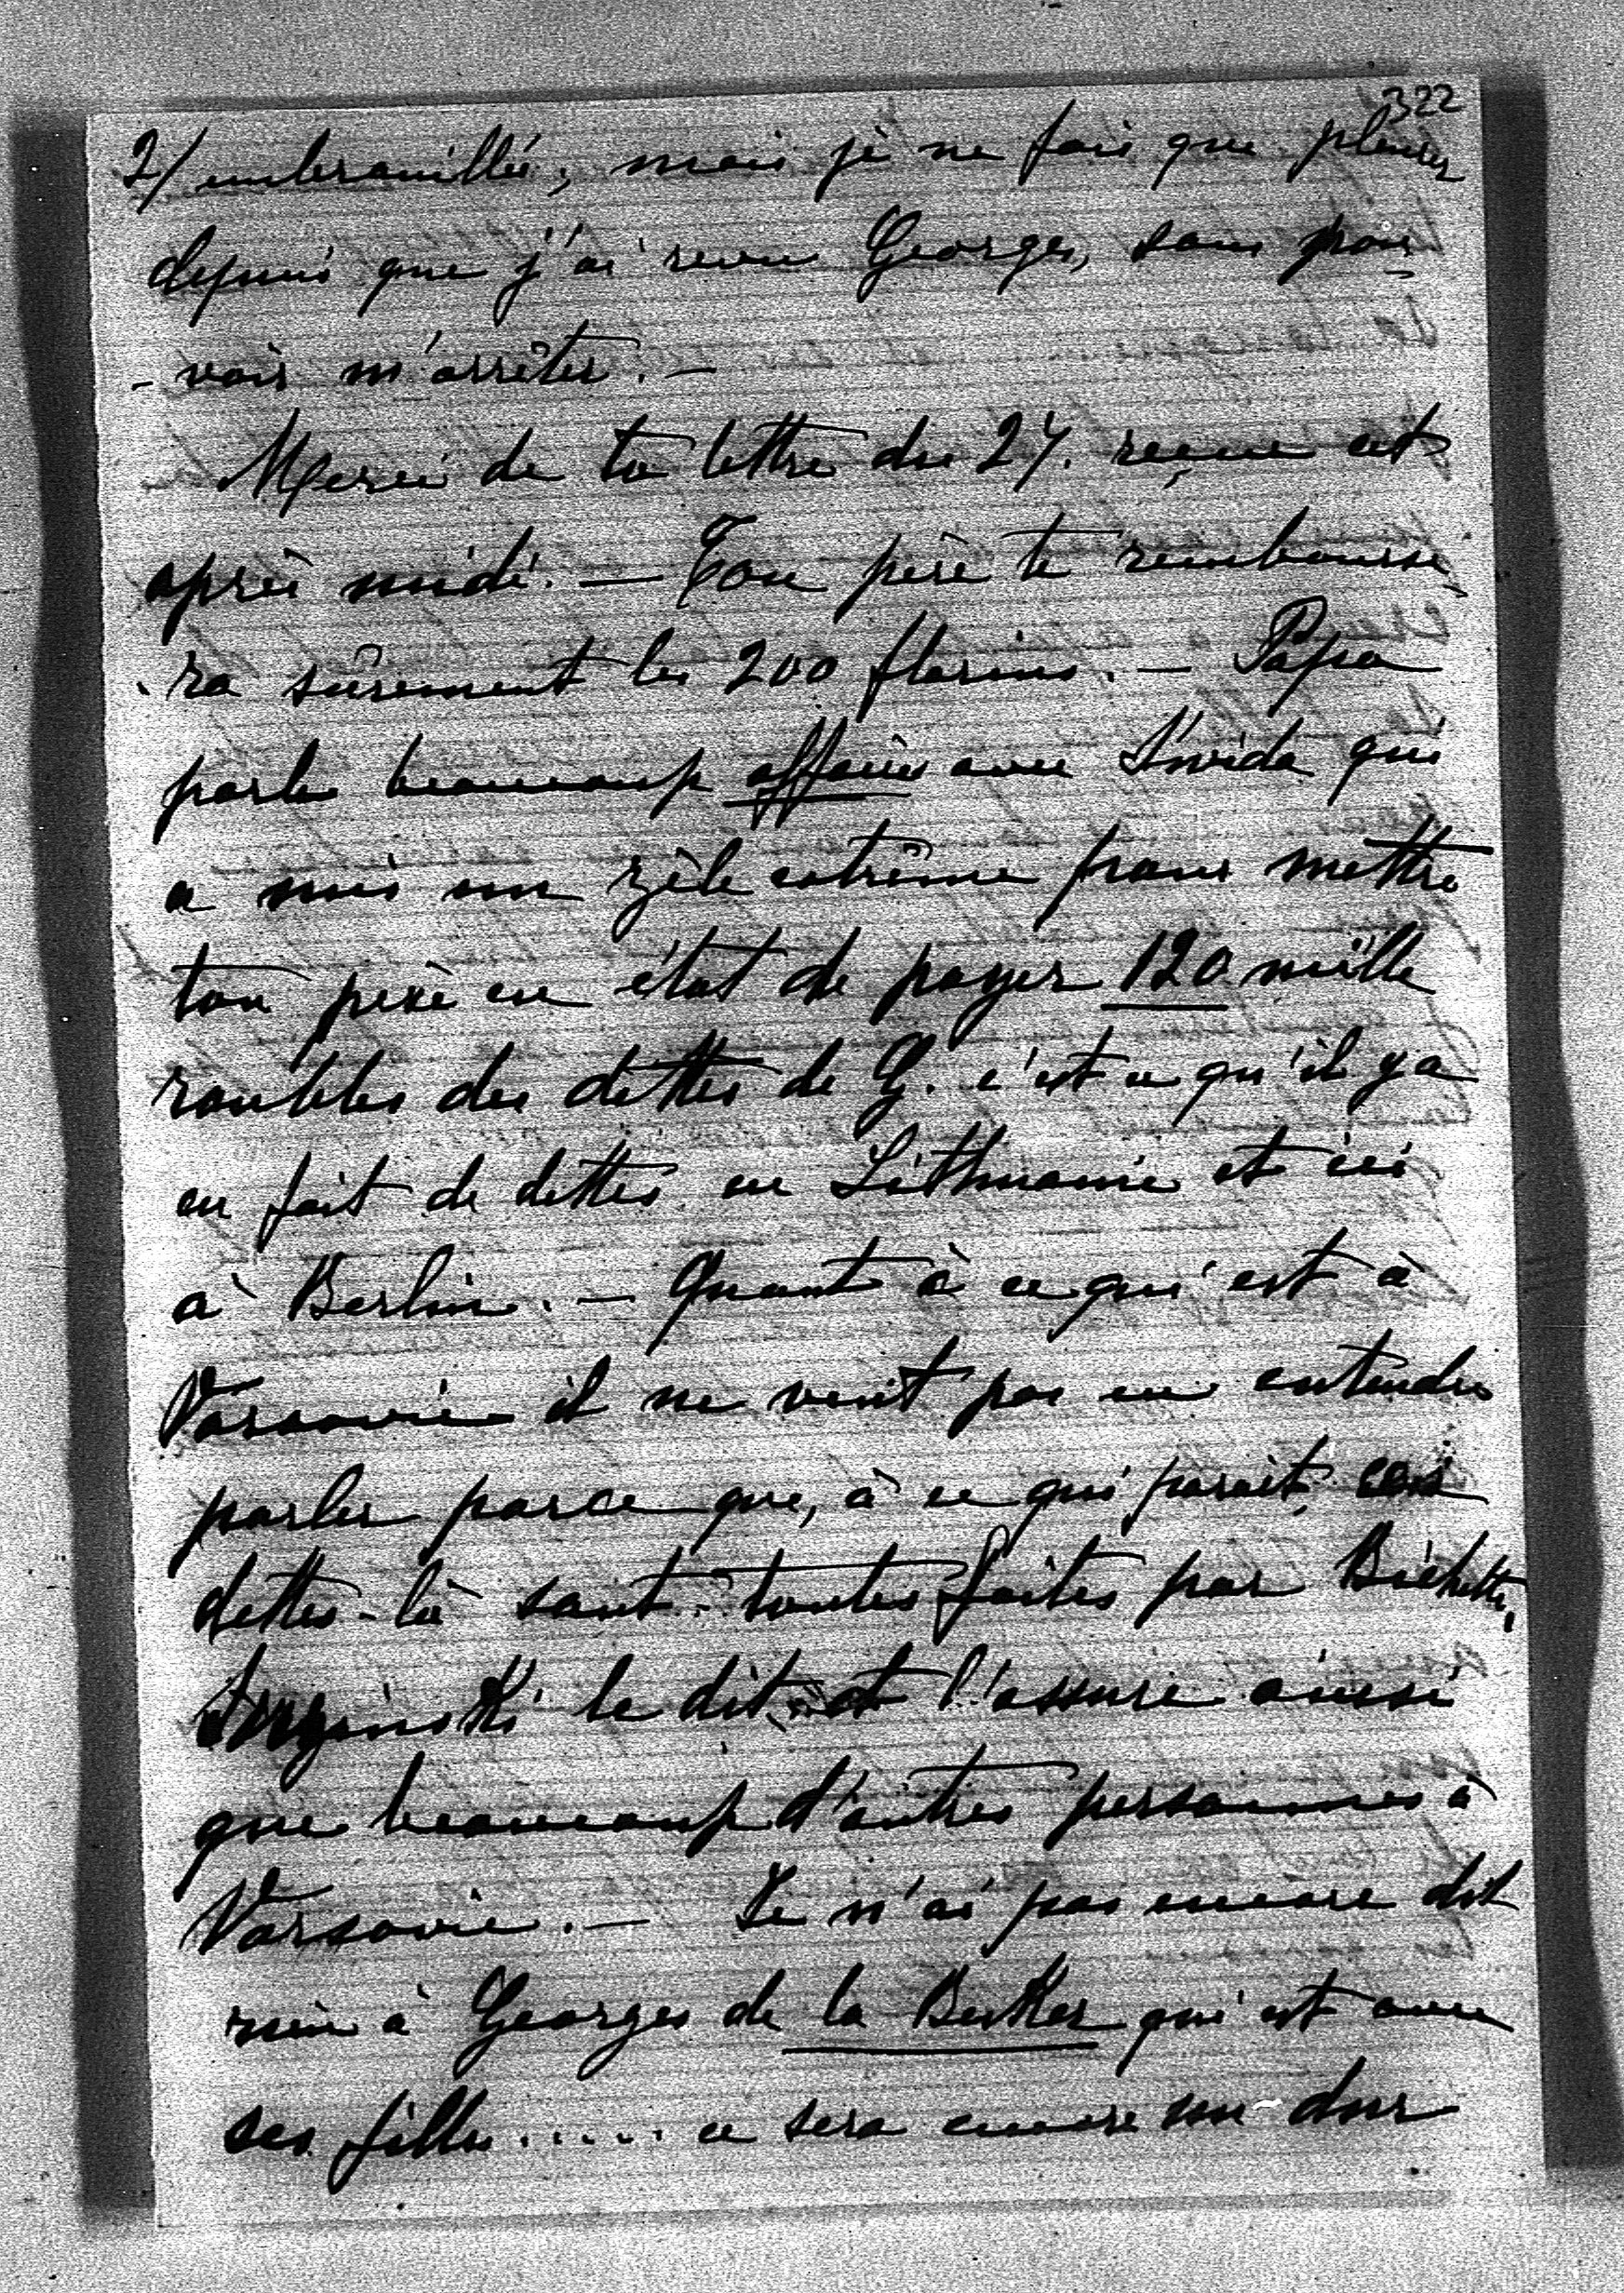 322
2/ embrouillée, mais je ne fais que pleurer
depuis que j'ai revu Georges, sans pou-
-voir m'arrêter. —
Merci de ta lettre du 24. reçue cet
après midi. — Ton père te rembourse-
-ra sûrement les 200 florins. — Papa
parle beaucoup affaires avec Swida qui
a mis un zèle extrême pour mettre
ton père en état de payer 120 mille
roubles des dettes de G. c'est ce qu'il y a
en fait de dettes en Lithuanie et ici
à Berlin. — Quant à ce qui est à
Varsovie il ne veut pas en entendre
parler parce que, à ce qui parait, ces
dettes-là sont toutes faites par Bichette,
le dit et l'assure ainsi
que beaucoup d'autres personnes à
Varsovie. — Je n'ai pas encore dit
rien à Georges de la Becker qui est avec
ses filles..... ce sera encore un dur